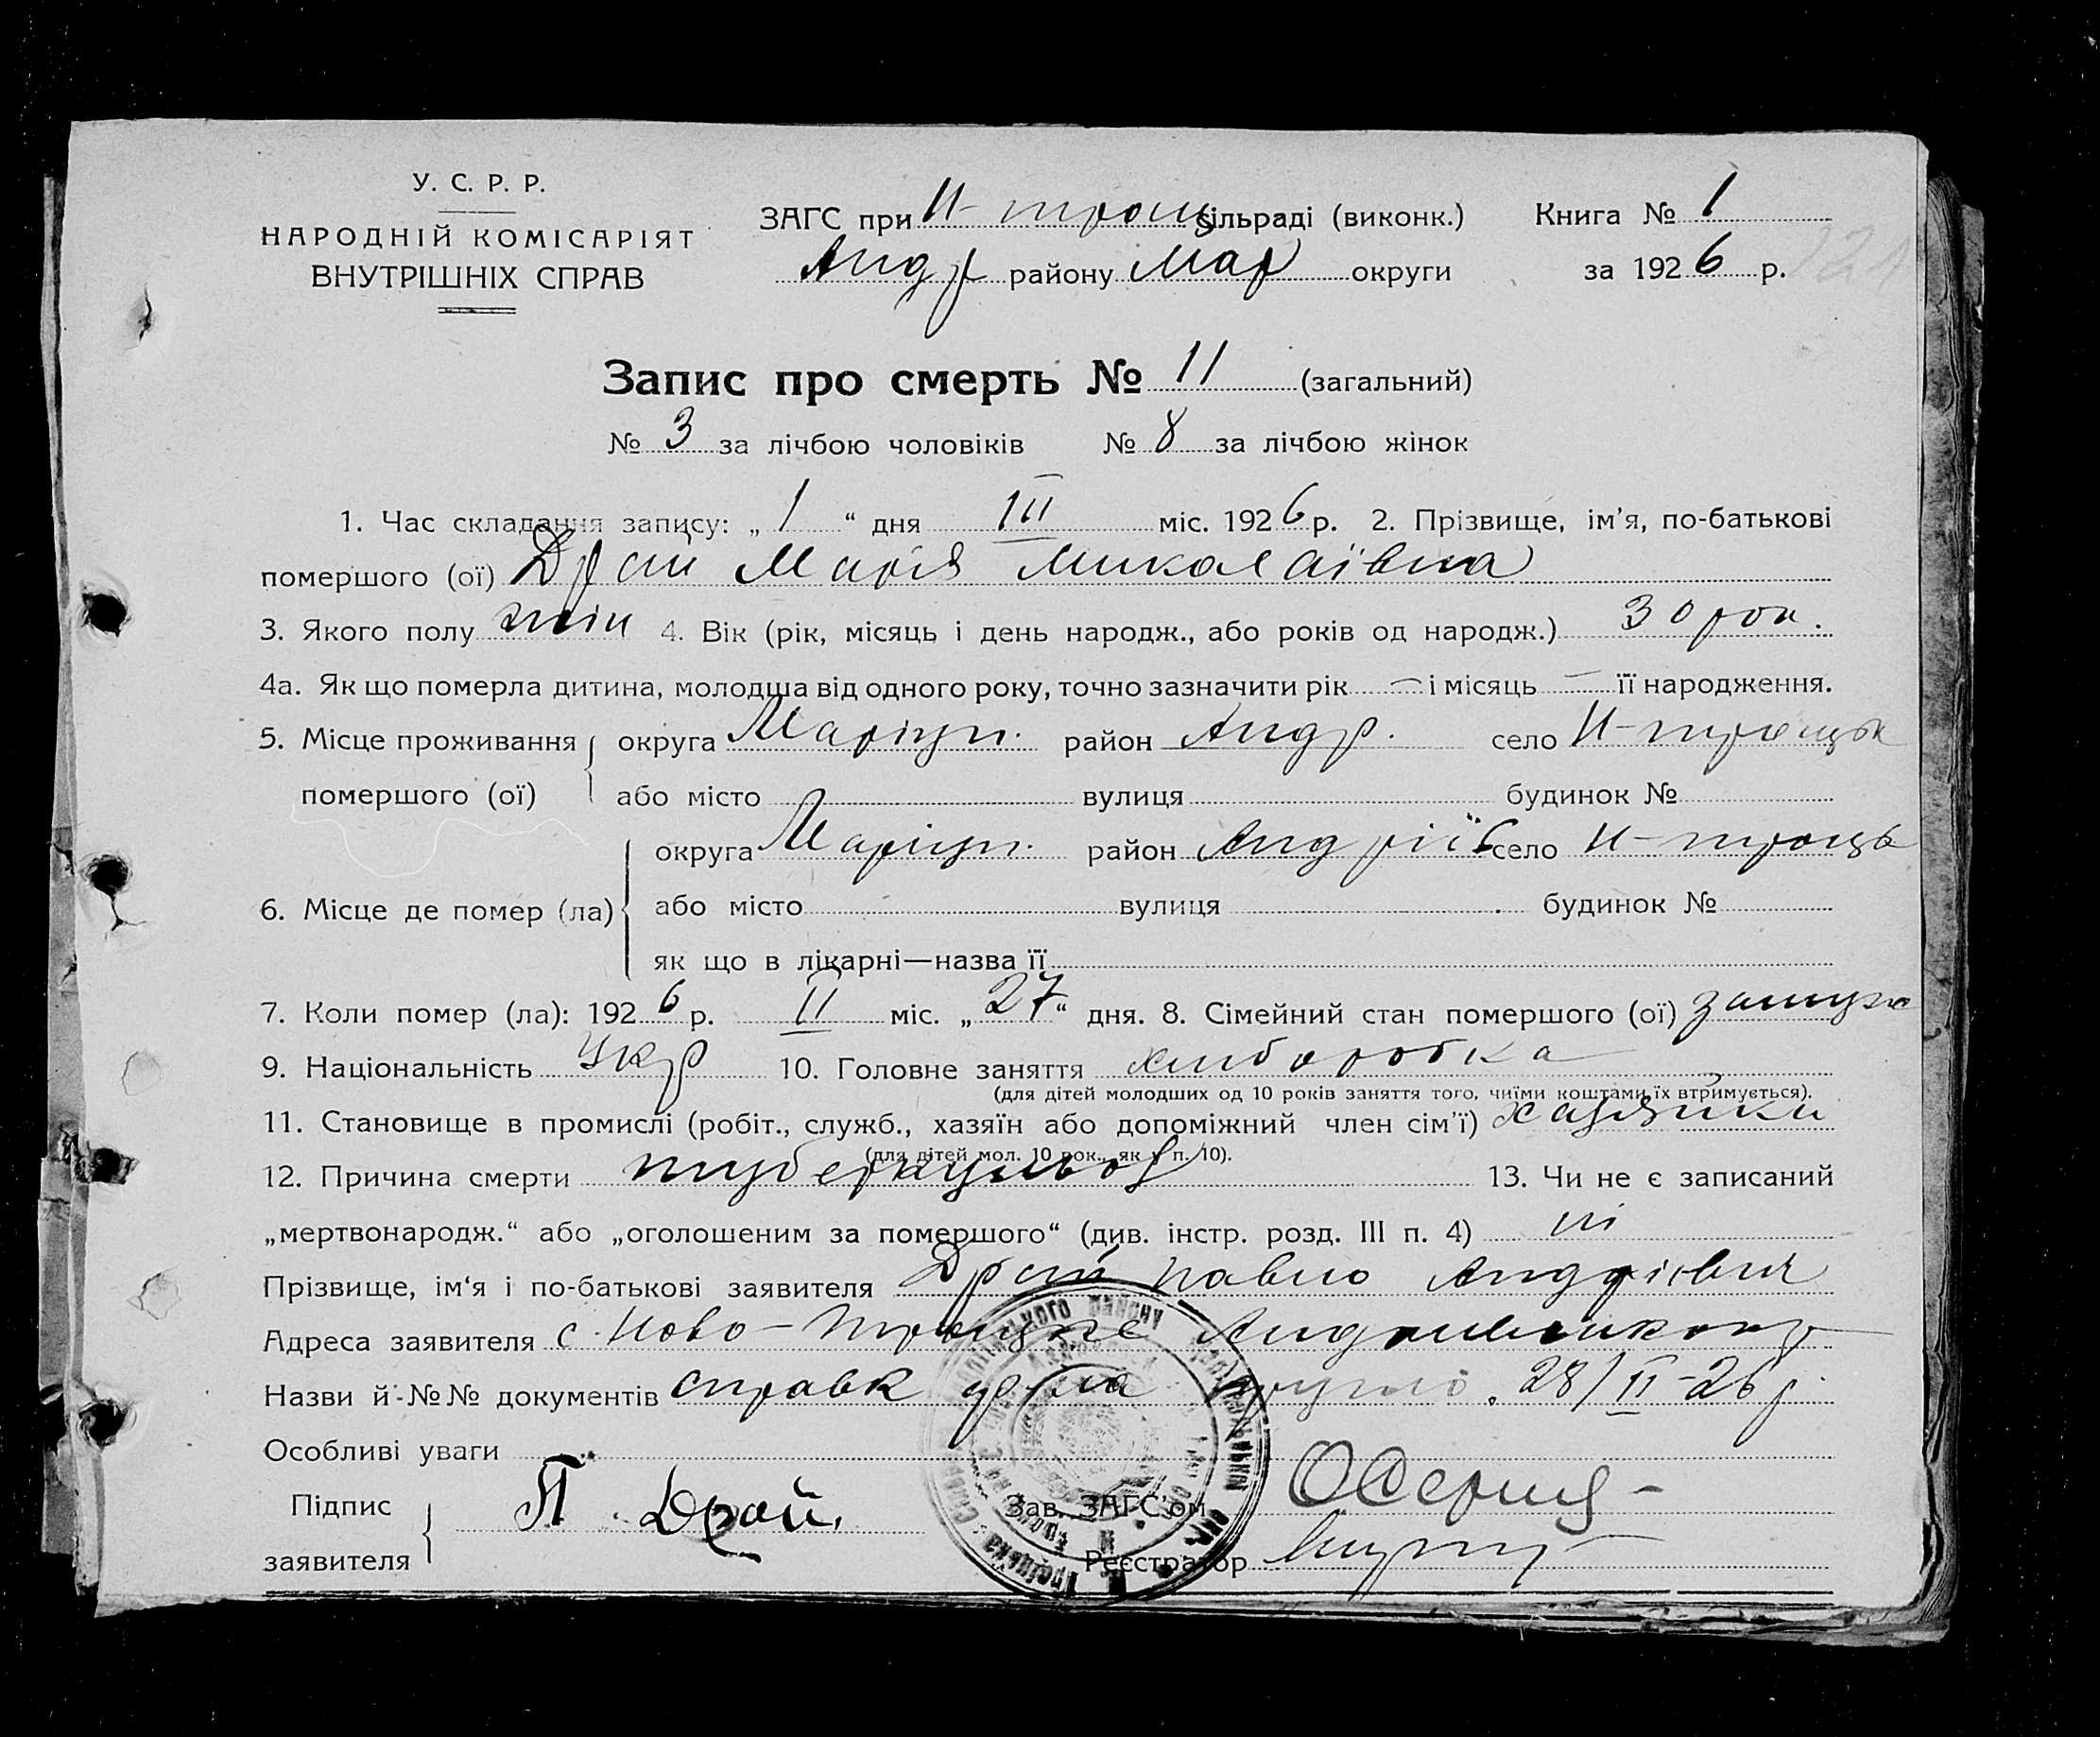 У. С. Р. Р.
НАРОДНІЙ КОМІСАРІЯТ
ВНУТРІШНІХ СПРАВ
ЗАГС при Н-троиц сільраді (виконк.)
Андр району Мар округи
Книга № 1
за 1926 р.
Запис про смерть № 11 (загальний)
№ 3 за лічбою чоловіків № 8 за лічбою жінок
1. Час складання запису: „ 1 “ дня III міс. 1926 р. 2. Прізвище, ім'я, по-батькові
помершого (ої) Драй Марія Миколаївна
3. Якого полу жін 4. Вік (рік, місяць і день народж., або років од народж.) 30 рок.
4а. Як що померла дитина, молодша від одного року, точно зазначити рік — і місяць — її народження.
5. Місце проживання помершого (ої) округа Маріуп. район Андр. село Н-троицьк
або місто вулиця будинок №
6. Місце де помер (ла) округа Маріуп. район Андріїв село Н-троцьк
або місто вулиця будинок №
як що в лікарні—назва її
7. Коли помер (ла): 1926 р. II міс. „27“ дня. 8. Сімейний стан помершого (ої) замуж
9. Національність Укр 10. Головне заняття хліборобка
(для дітей молодших од 10 років заняття того, чиїми коштами їх втримується).
11. Становище в промислі (робіт., служб., хазяїн або допоміжний член сім'ї) хазяйка
(для дітей мол. 10 рок., як у п. 10).
12. Причина смерти туберкульоз 13. Чи не є записаний
„мертвонародж.“ або „оголошеним за помершого“ (див. інстр. розд. III п. 4) ні
Прізвище, ім'я і по-батькові заявителя Драй Павло Андрієвич
Адреса заявителя с. Ново-Троицке
Назви й №№ документів справк 28/II-26 р.
Особливі уваги
Підпис заявителя П. Драй.
Зав. ЗАГС'ом
Реєстратор